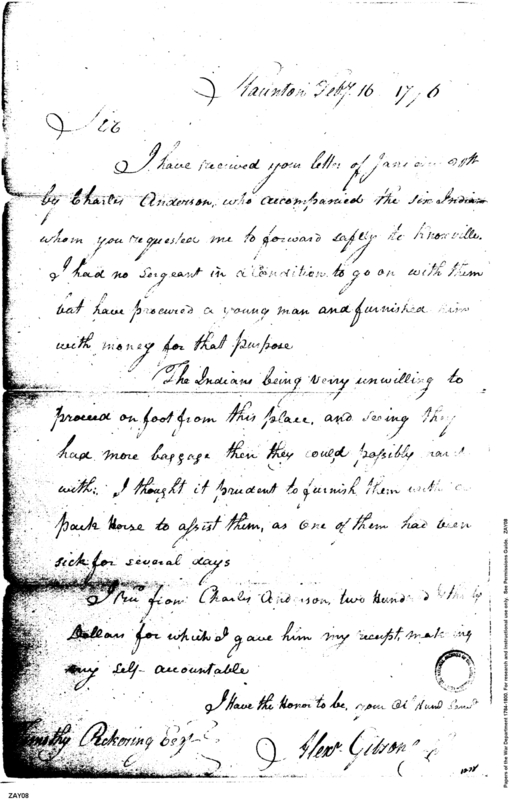 Staunton Feby. 16 1796
Sir
I have received your letter of January 20th
by Charles Anderson, who accompanied the six Indians
whom you requested me to forward safely to Knoxville.
I had no sergeant in a condition to go on with them
but have procured a young man and furnished him
with money for that purpose
The Indians being verry unwilling to
proceed on foot from this place, and seeing they
had more baggage then they could possibly
with; I thought it prudent to furnish them with a
pack Horse to assist them, as one of them had been
sick for several days
I from Charles Anderson, two Hundred &
Dollars for which I gave him my receipt, making
my self accountable
I Have the Honor to be, your Ob Humb Servt
Timothy Pickering Esqr
Alexr. Gibson
ZAY08
Papers of the War Department 1784-1800. For research and instructional use only. See Permissions Guide. ZAY08